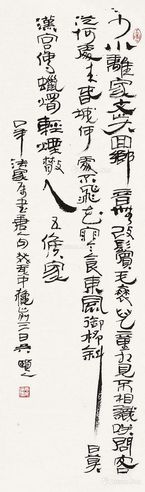 少小離家老大回鄉音無改鬢毛衰兒童相見不相識笑問客
從何處來春城何處不飛花寒食東風御柳斜日暮
漢宮傳蠟燭輕煙散入五侯家